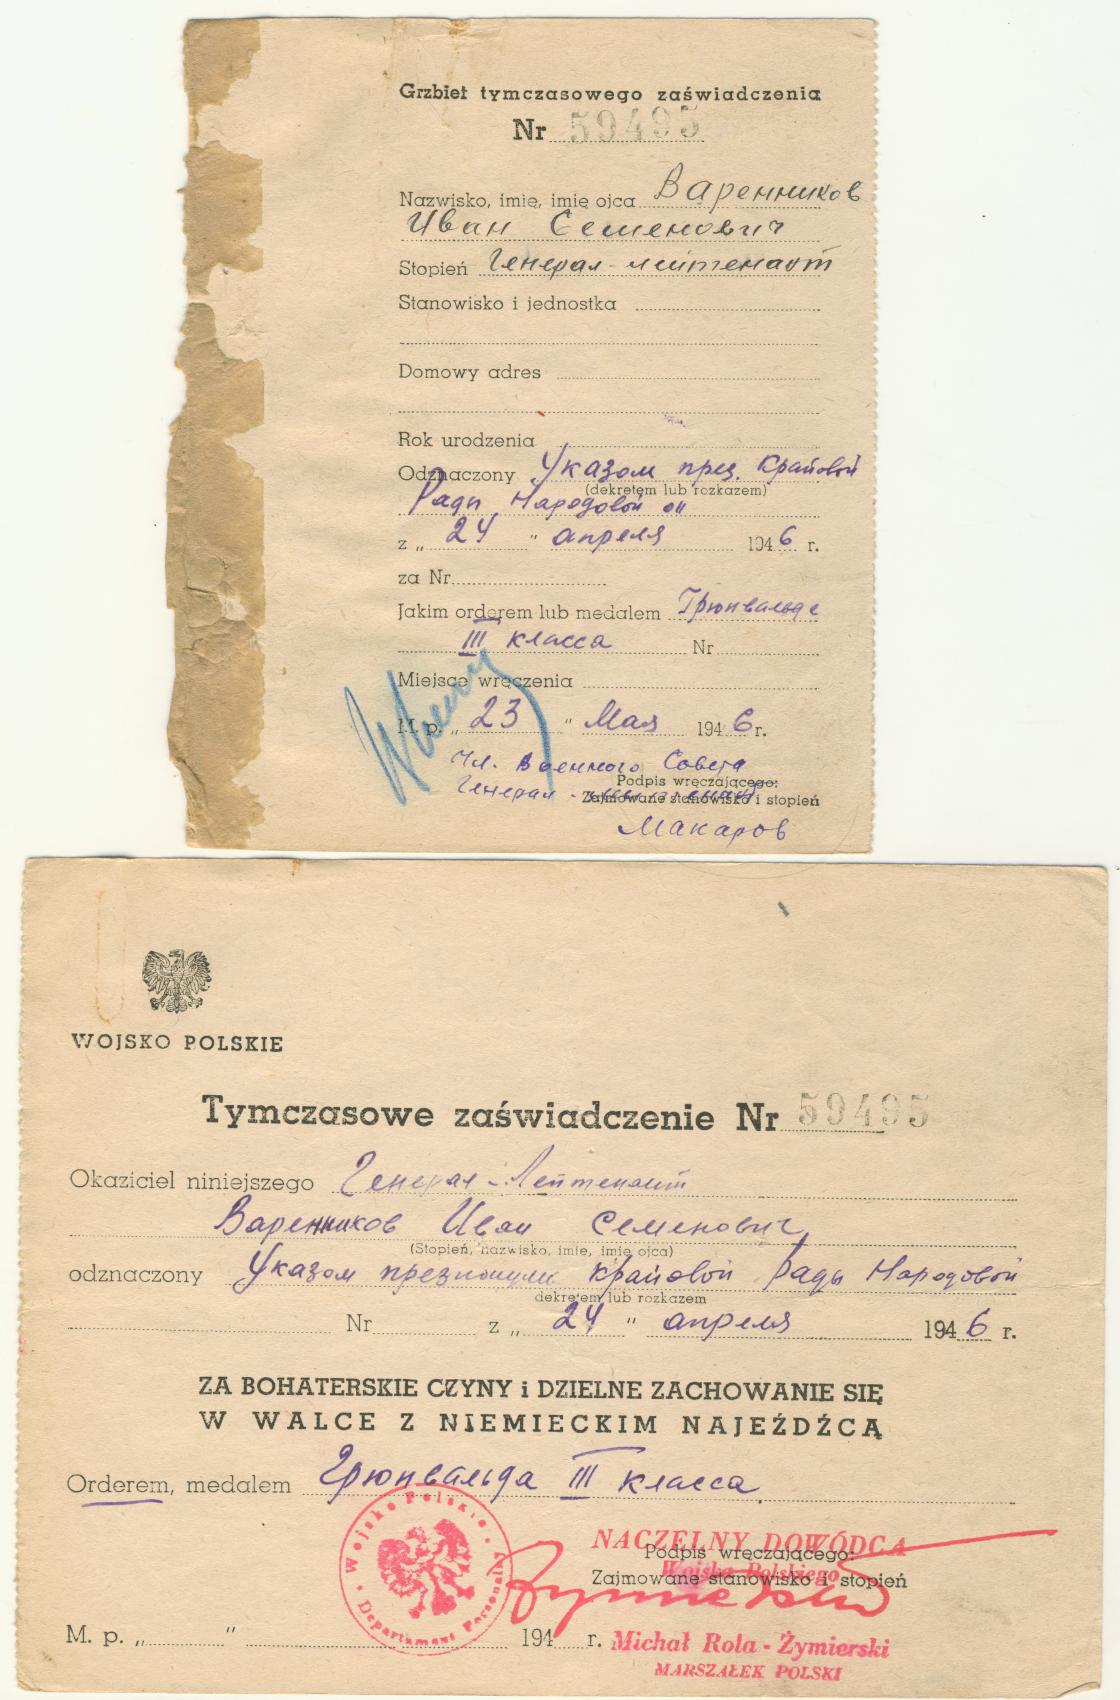 Grzbiet tymczasowego zaświadczenia
Nr 59495
Nazwisko, imię, imię ojca Варенников
Иван Семенович
Stopień Генерал-лейтенант
Stanowisko i jednostka
Domowy adres
Rok urodzenia
Odznaczony Указом през. Крайовой
(dekretem lub rozkazem)
Рады Народовой
z „ 24 " апреля 1946 r.
za Nr
Jakim orderem lub medalem Грюнвальда
III класса Nr
Miejsce wręczenia
M. p. „ 23 " Мая 1946 r.
Чл. Военного Совета
Podpis wręczającego:
Генерал-лейтенант
Zajmowane stanowisko i stopień
Макаров
WOJSKO POLSKIE
Tymczasowe zaświadczenie Nr 59495
Okaziciel niniejszego Генерал-Лейтенант
Варенников Иван Семенович
(Stopień, nazwisko, imie, imię ojca)
odznaczony Указом Крайовой Рады Народовой
dekretem lub rozkazem
Nr z „ 24 " апреля 1946 r.
ZA BOHATERSKIE CZYNY i DZIELNE ZACHOWANIE SIĘ
W WALCE Z NIEMIECKIM NAJEŹDŹCĄ
Orderem, medalem Грюнвальда III класса
Wojsko Polskie · Departament Personalny
NACZELNY DOWÓDCA
Podpis wręczającego:
Wojska Polskiego
Zajmowane stanowisko i stopień
M. p. „ " 194 r.
Michał Rola-Żymierski
MARSZAŁEK POLSKI